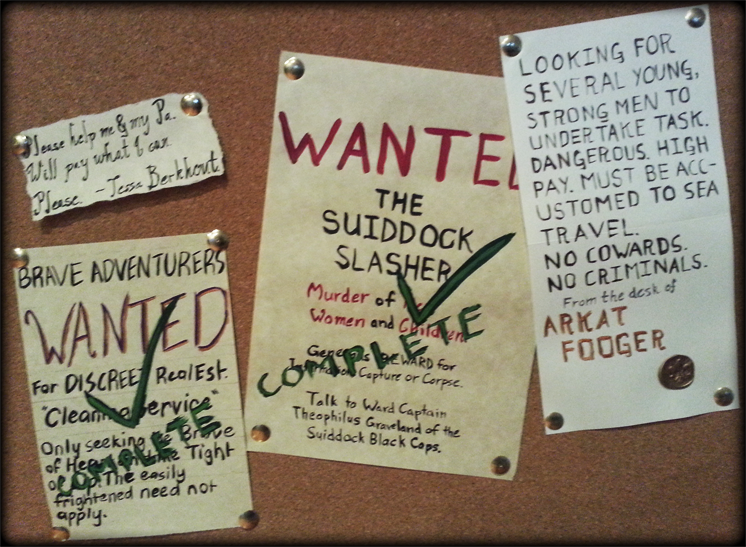 Please help me & my Pa.
Will pay what I can
Please. - Jessa Berkhout
BRAVE ADVENTURERS
WANTED
For DISCREET Real Est.
"Cleaning Service"
Only seeking the Brave
of Heart and the Tight
of Lip! The easily
frightened need not
apply.
COMPLETE
WANTED
THE
SUIDDOCK
SLASHER
Murder of
Women and Children
Generous REWARD for
Information Capture or Corpse.
Talk to Ward Captain
Theophilus Graveland of the
Suiddock Black Cops.
COMPLETE
LOOKING FOR
SEVERAL YOUNG,
STRONG MEN TO
UNDERTAKE TASK.
DANGEROUS. HIGH
PAY. MUST BE ACC-
USTOMED TO SEA
TRAVEL.
NO COWARDS.
NO CRIMINALS.
From the desk of
ARKAT
FOOGER